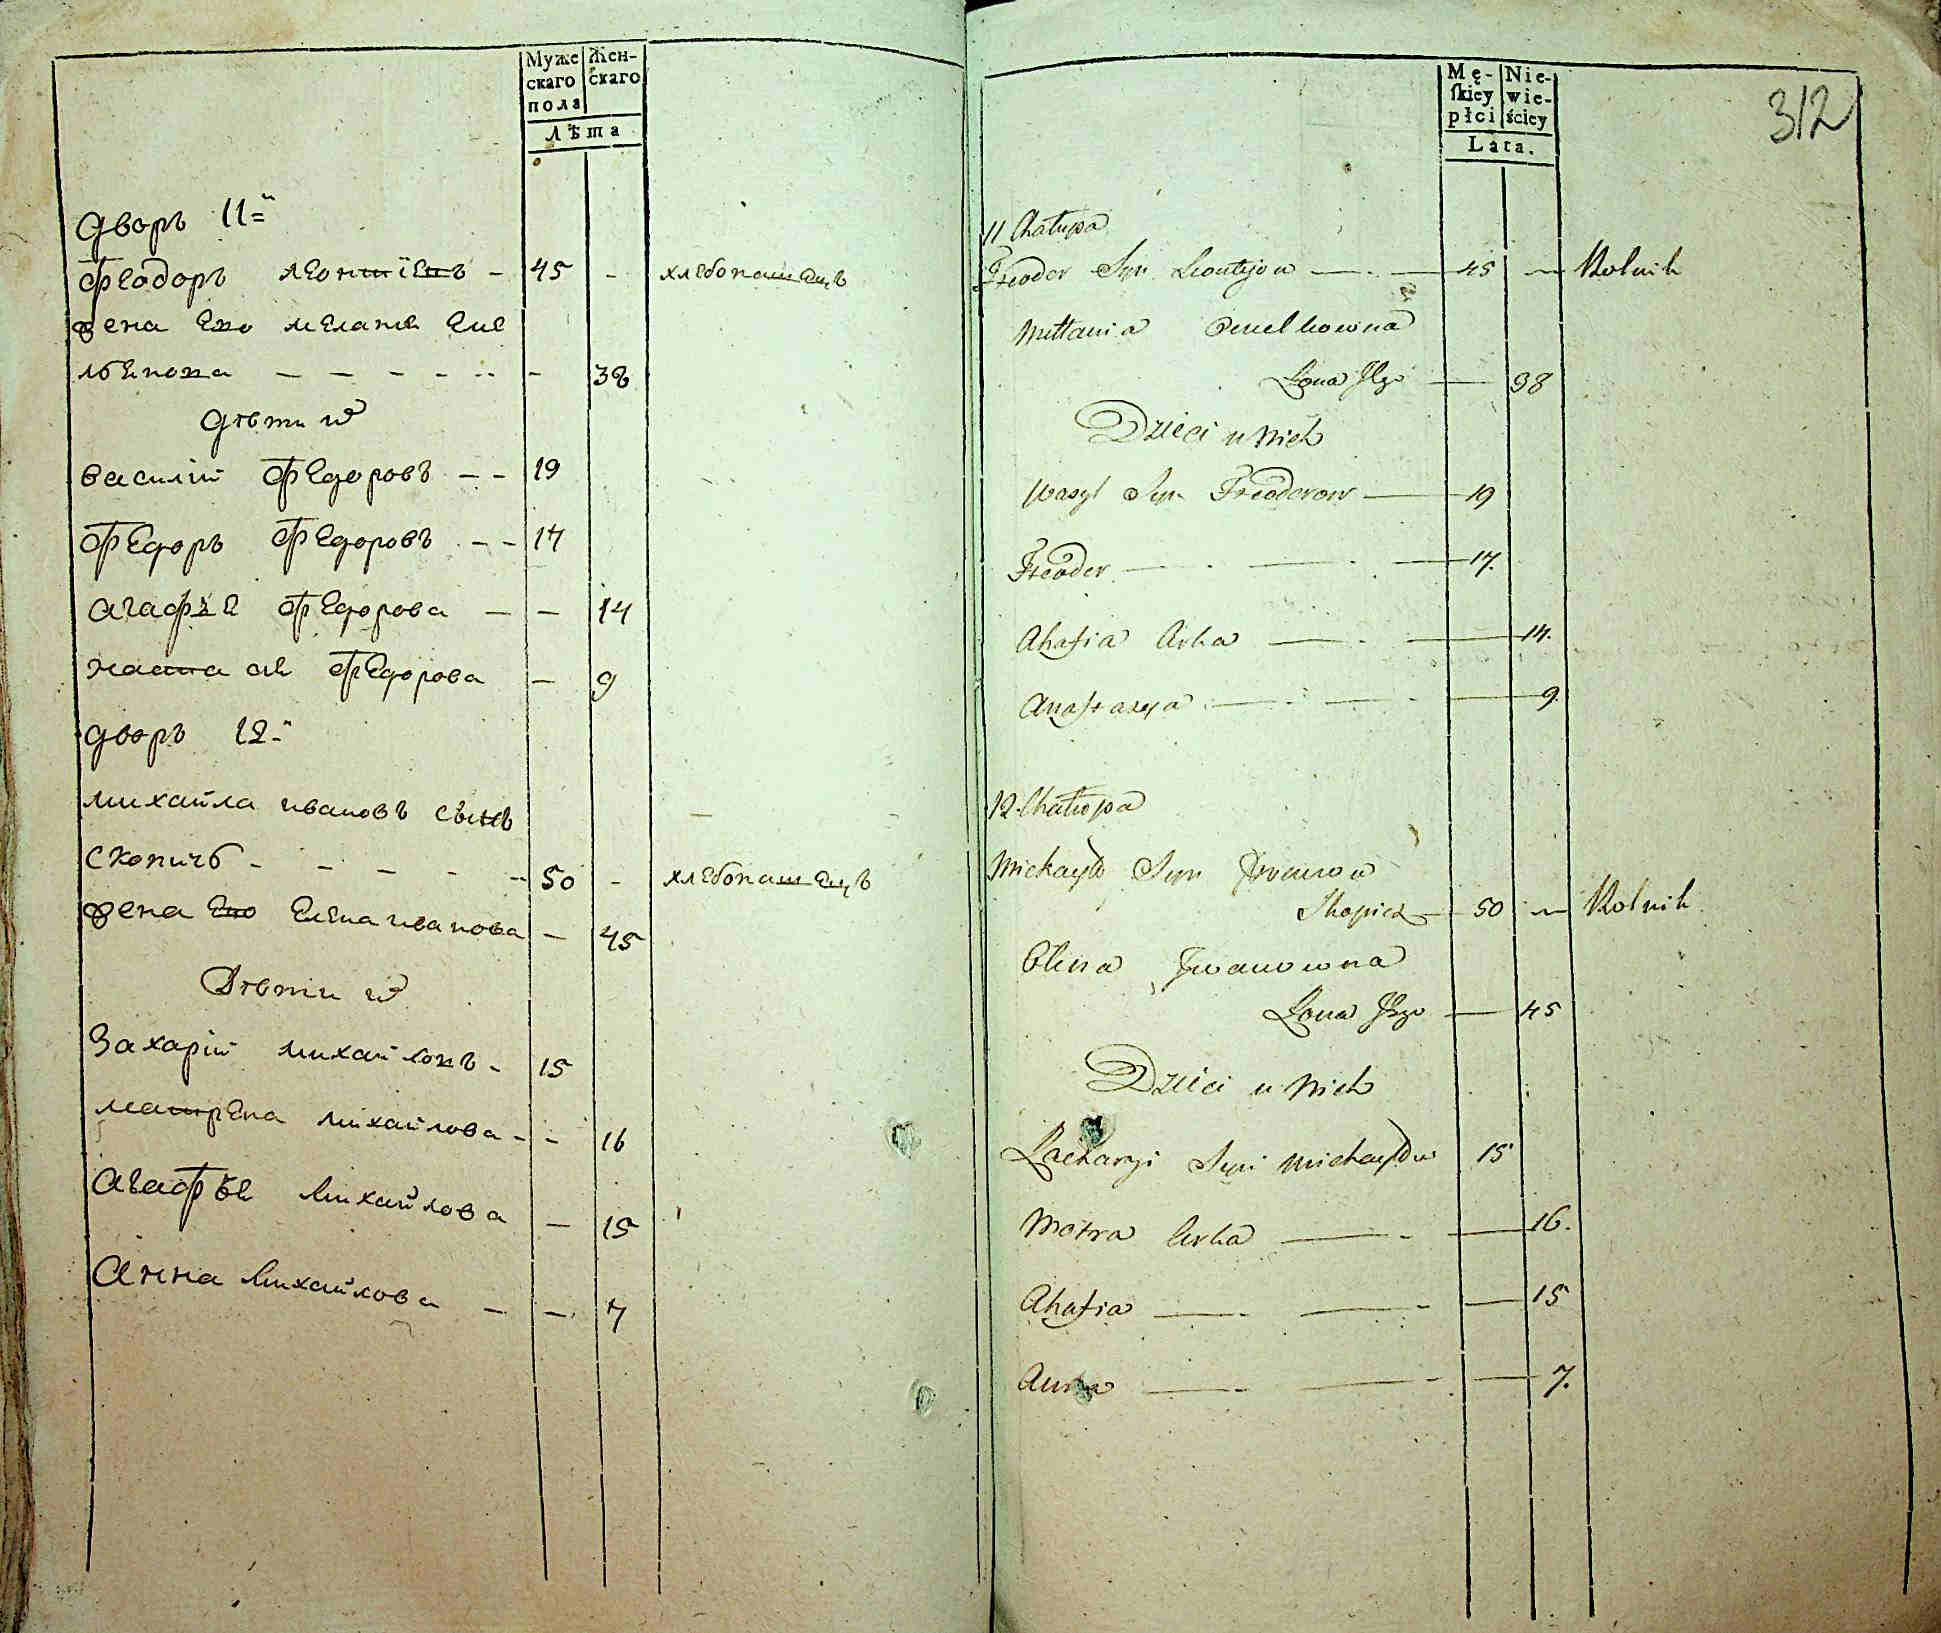 Муже
скаго
пола
Жен-
скаго
лѣта
дворъ 11=й
Феодоръ леонтіевъ - 45 - хлебопашецъ
жена его мелания еме
льянова - - - - - - 38
дѣти ихъ
василій Федоровъ - - 19
Федоръ Федоровъ - - 17
агафия Федорова - - 14
настасия Федорова - 9
дворъ 12-й
михайла ивановъ сынъ
скопичь - - - - - 50 - хлебопашецъ
жена его елена иванова - 45
Дѣти ихъ
Захарій михайловъ - 15
матрена михайлова - - 16
агафья михайлова - 15
Анна михайлова - - 7
312
Mę-
skiey
płci
Nie-
wie-
ściey
Lata.
11 Chałupa
Fteodor Syn Leontyiow — 45 — Rolnik
Mełłania Omelkowna
Żona Jego — 38
Dzieci u nich
Wasyl Syn Fteodorow — 19
Fteodor — 17.
Ahafia Corka — 14.
Anastazya — 9.
12 Chałupa
Michayło Syn Jwanow
Skopicz — 50 — Rolnik
Olena Jwanowna
Żona Jego — 45
Dzieci u Nich
Zacharyi Syn Michayłow 15
Motra Corka — 16.
Ahafia — 15
Anna — 7.